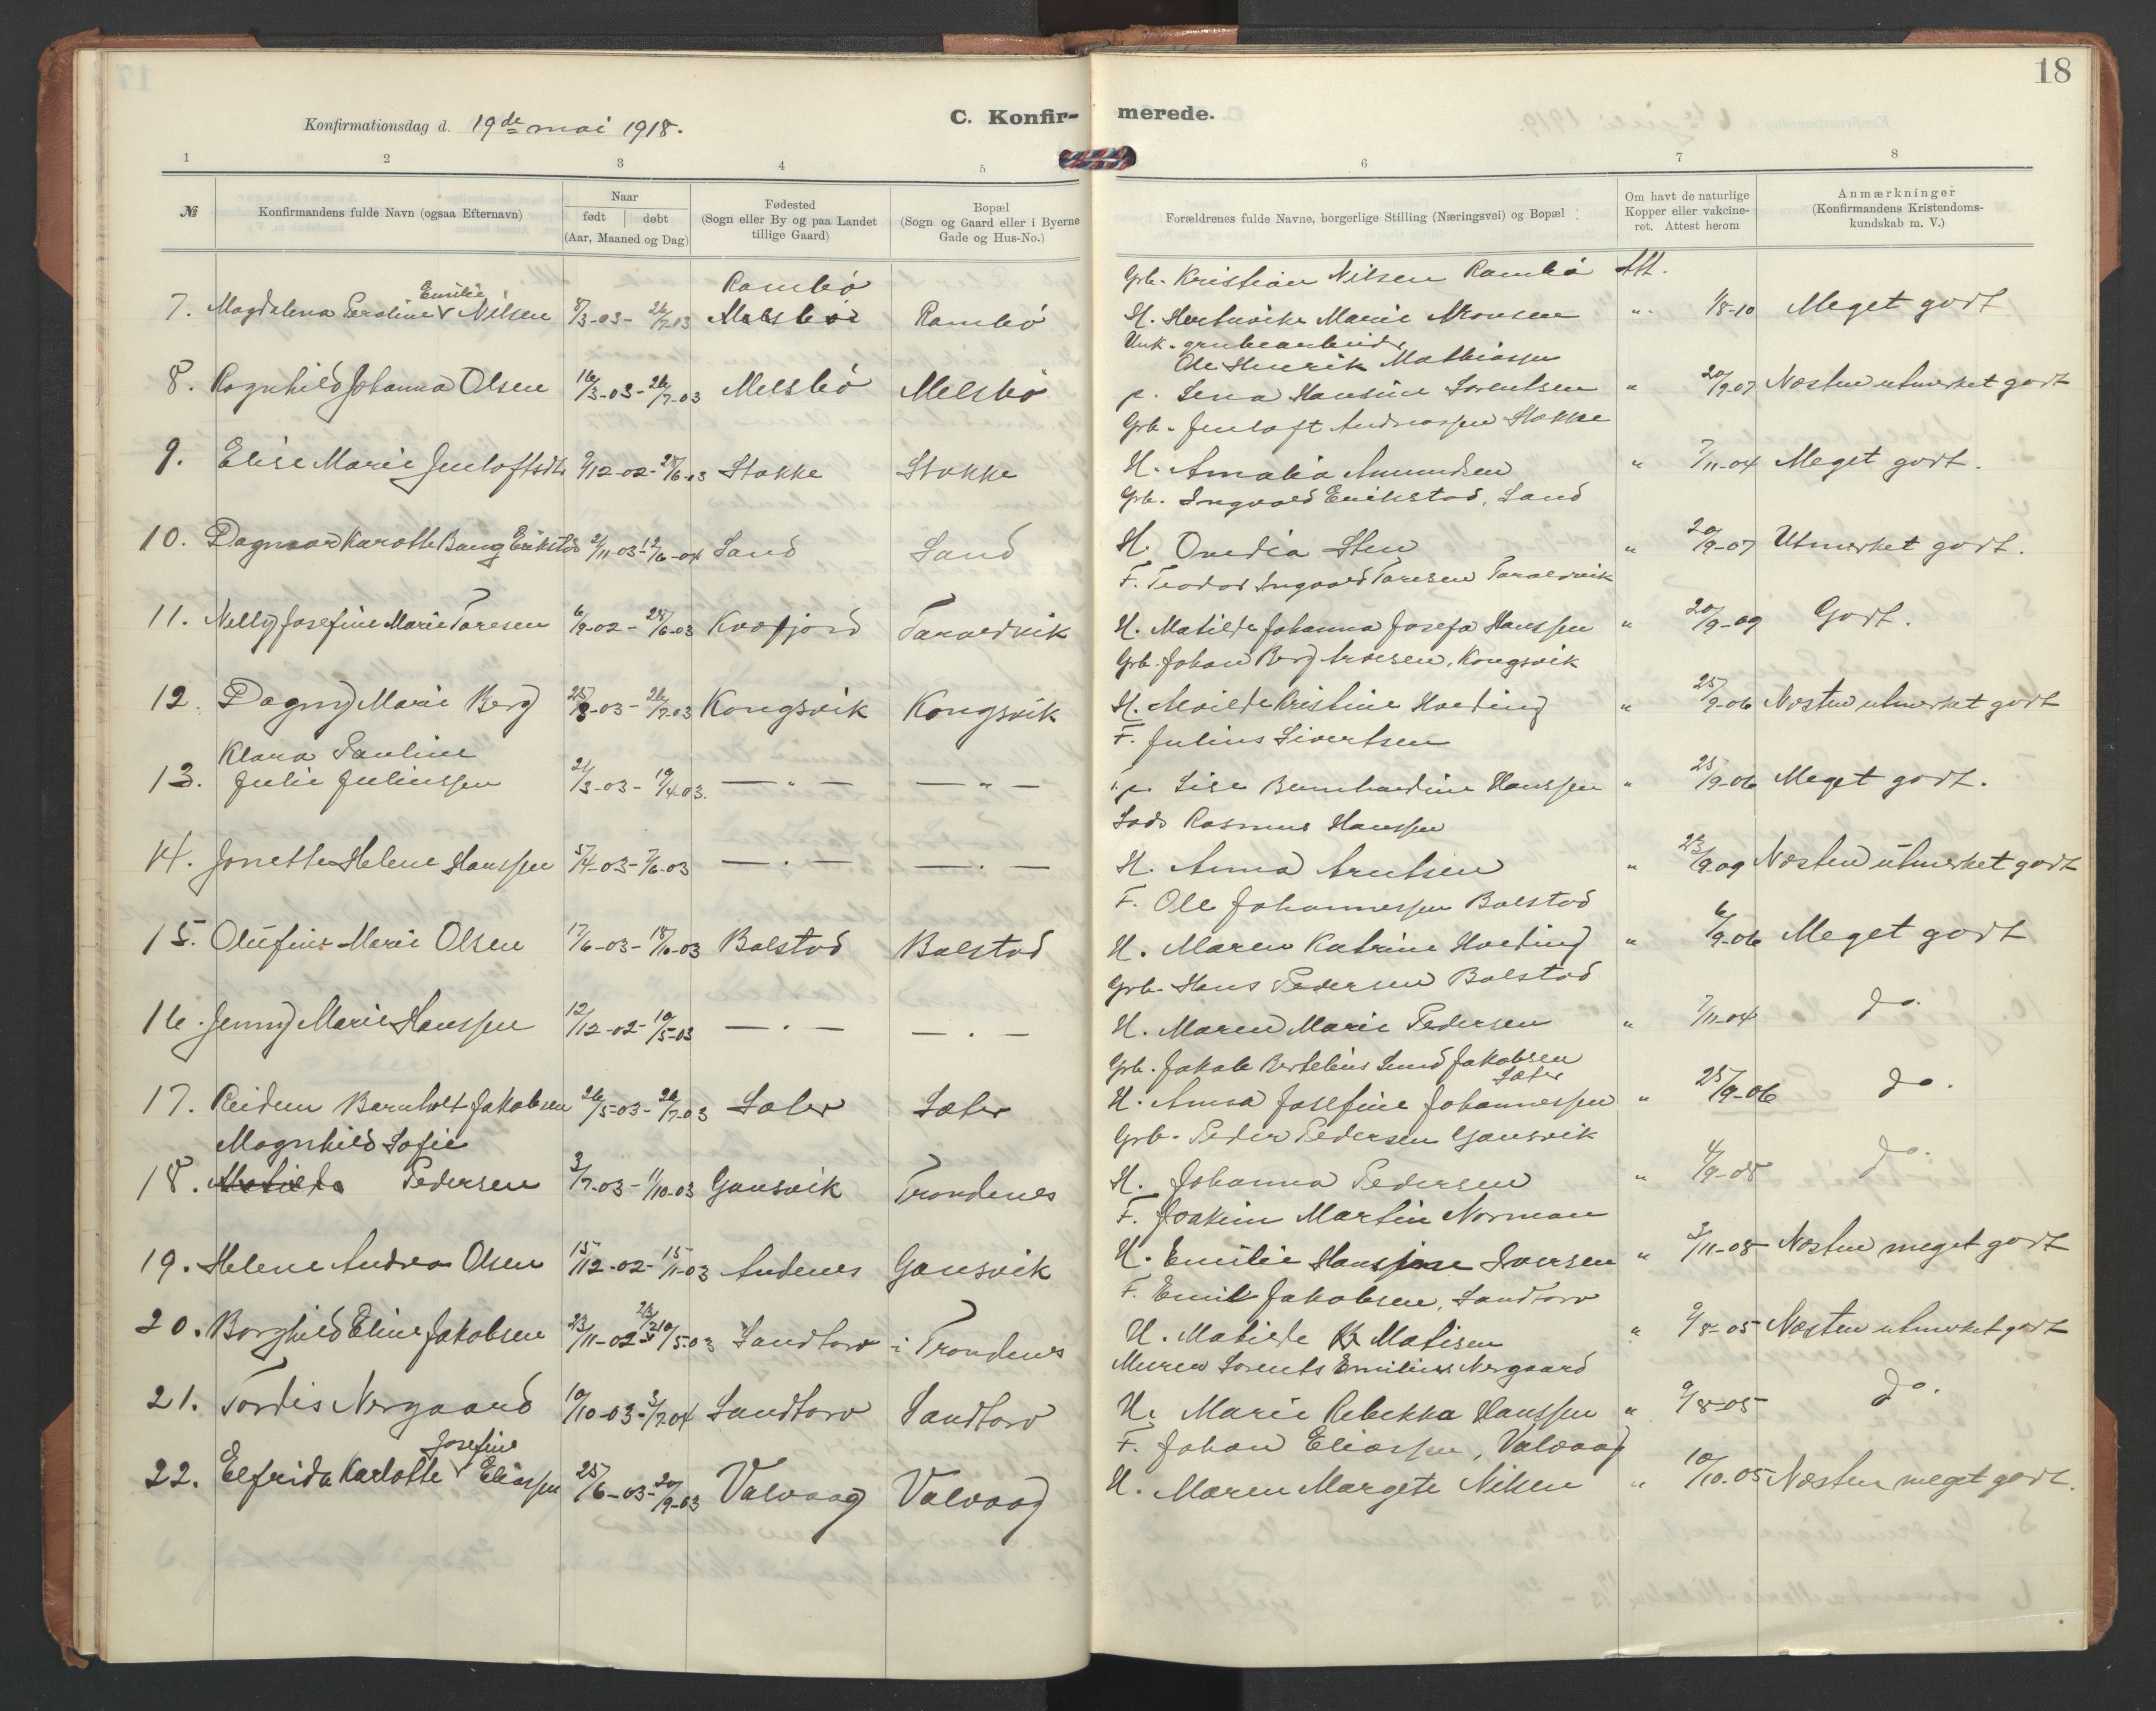 18
Konfirmationsdag d. 19de mai 1918.
C. Konfir- merede.
1 2 3 4 5 6 7 8
№
Konfirmandens fulde Navn (ogsaa Efternavn)
Naar
født døbt
(Aar, Maaned og Dag)
Fødested
(Sogn eller By og paa Landet
tillige Gaard)
Bopæl
(Sogn og Gaard eller i Byerne
Gade og Hus-No.)
Forældrenes fulde Navne, borgerlige Stilling (Næringsvei) og Bopæl
Om havt de naturlige
Kopper eller vakcine-
ret. Attest herom
Anmærkninger
(Konfirmandens Kristendoms-
kundskab m. V.)
Emilie Rambø Grb. Kristian Nilsen Rambø Att.
7. Magdalena Peroline Nilsen 8/3-03- 26/7-03 Melsbø Rambø H. Marie Monsen " 1/8-10 Meget godt
Unk. grubearbeider
Ole Henrik Mathiassen
8. Ragnhild Johanna Olsen 16/3-03- 26/7-03 Melsbø Melsbø p. Lena Hansine Lorentsen " 20/9-07 Næsten utmerket godt
Grb. Jenloft Andreassen Stokke
9. Elise Marie Jenloftsdtr 9/12-02- 28/6-03 Stokke Stokke H. Amalia Amundsen " 7/11-04 Meget godt.
Grb. Ingvald Erikstad, Sand
10. Dagmar Karotte Bang Erikstad 2/11-03- 12/6-04 Sand Sand H. Ovedia Sten " 20/9-07 Utmerket godt.
F. Teodor Ingvald Taresen Taraldvik
11. Nelly Josefine Marie Taresen 6/9-02- 28/6-03 Kvæfjord Taraldvik H. Matilde Johanna Josefa Hanssen " 20/9-09 Godt.
Grb. Johan Berg Arnesen, Kongsvik
12. Dagny Marie Berg 25/3-03- 26/7-03 Kongsvik Kongsvik H. Alvilde Kristine Hveding " 25/9-06 Næsten utmerket godt
Klara Pauline F. Julius Sivertsen
13. Julie Juliussen 21/3-03- 19/4-03. — " — — " — p. Lise Bernhardine Hanssen " 25/9-06 Meget godt.
Lods Rasmus Hanssen
14. Jonette Helene Hanssen 5/4-03- 7/6-03 — . — — . — H. Anna Arntsen " 23/9-09 Næsten utmerket godt
F. Ole Johannessen Bolstad
15. Olufine Marie Olsen 17/6-03- 18/6-03 Bolstad Bolstad H. Maren Katrine Hveding " 6/9-06 Meget godt
Grb. Hans Pedersen Bolstad
16. Jenny Marie Hanssen 12/12-02- 10/5-03 — . — — . — H. Maren Marie Pedersen " 7/11-04 do.
Grb. Jakob Bertelius Lund Jakobsen
Sæter
17. Reidun Bernholt Jakobsen 26/5-03- 26/7-03 Sæter Sæter H. Anna Josefine Johannessen " 25/9-06 do.
Magnhild Sofie Grb. Peder Pedersen Gausvik
18. Matilde Pedersen 3/7-03- 11/10-03 Gausvik Trondenes H. Johanna Pedersen " 4/9-08 do.
F. Joakim Martin Norman
19. Helene Andrea Olsen 15/12-02- 15/11-03 Andenes Gausvik H. Emilie Hanssine Iversen " 3/11-08 Næsten meget godt
F. Emil Jakobsen, Sandtorv
20. Borghild Eline Jakobsen 23/11-02 10/5-03 Sandtorv i Trondenes H. Matilde Matisen " 9/8-05 Næsten utmerket godt
Murer Lorents Emilius Nergaard
21. Tordis Nergaard 10/10-03- 3/7-04 Sandtorv Sandtorv H. Marie Rebekka Hanssen " 9/8-05 do.
Josefine F. Johan Eliassen, Valvaag
22. Elfrida Karlotte Eliassen 25/6-03- 20/9-03 Valvaag Valvaag H. Maren Margete Nilsen " 10/10-05 Næsten meget godt.